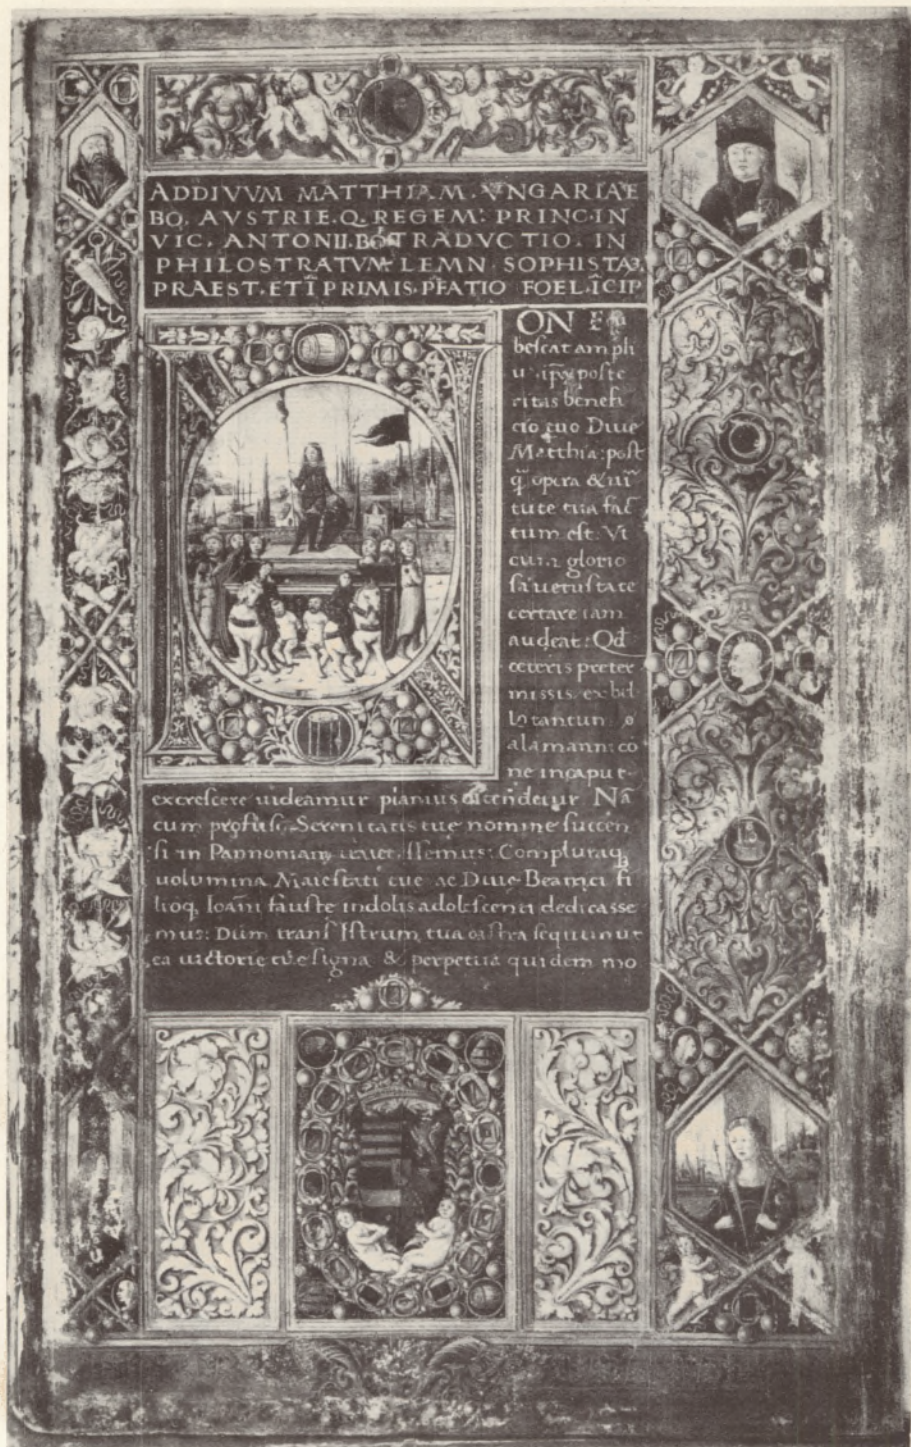 ADDIVVM MATTHIAM. VNGARIAE
BO. AVSTRIE.Q. REGEM: PRINC. IN
VIC. ANTONII. BŌ TRADVCTIO. IN
PHILOSTRATVM LEMN. SOPHISTAZ,
PRAEST. ET Ī PRIMIS. PFATIO FOELICIP
ON
bescat ampli
poste
ritas benefi
cio tuo Diue
Matthia: post
q̄ opera & uir
tute tua fac
tum est. Vt
cum glorio
sa uetustate
certare iam
audeat: Qd
ceteris preter
missis. ex bel
lo tantum
alamannico
ne in caput
excrescere uideamur planius ostendetur Nā
cum profusi Serenitatis tuę nomine succen
si in Pannoniam Compluraq,
uolumina Maiestati tue ac Diuę Beatrici fi
lioq, Ioāni fauste indolis adolescenti dedicasse
mus: Dum trans Istrum tua castra sequimur
ea uictorie tue signa & perpetua quidem mo